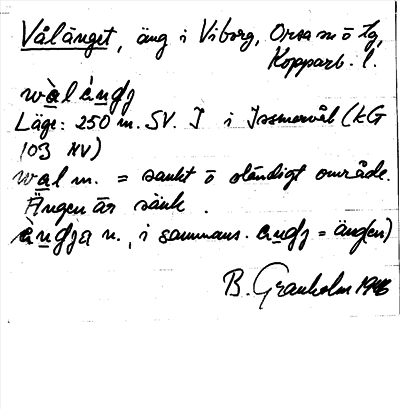 Vålänget, äng i Viborg, Orsa sn ö tg,
Kopparb. l.
wàlàndj
Läge: 250 m. SV. I i Issmorvål (KG
103 NV)
wal m. = sankt o ständigt område.
Ängen är sänk.
àndja n., i sammans. àndj = äng(en)
B. Granholm 1946